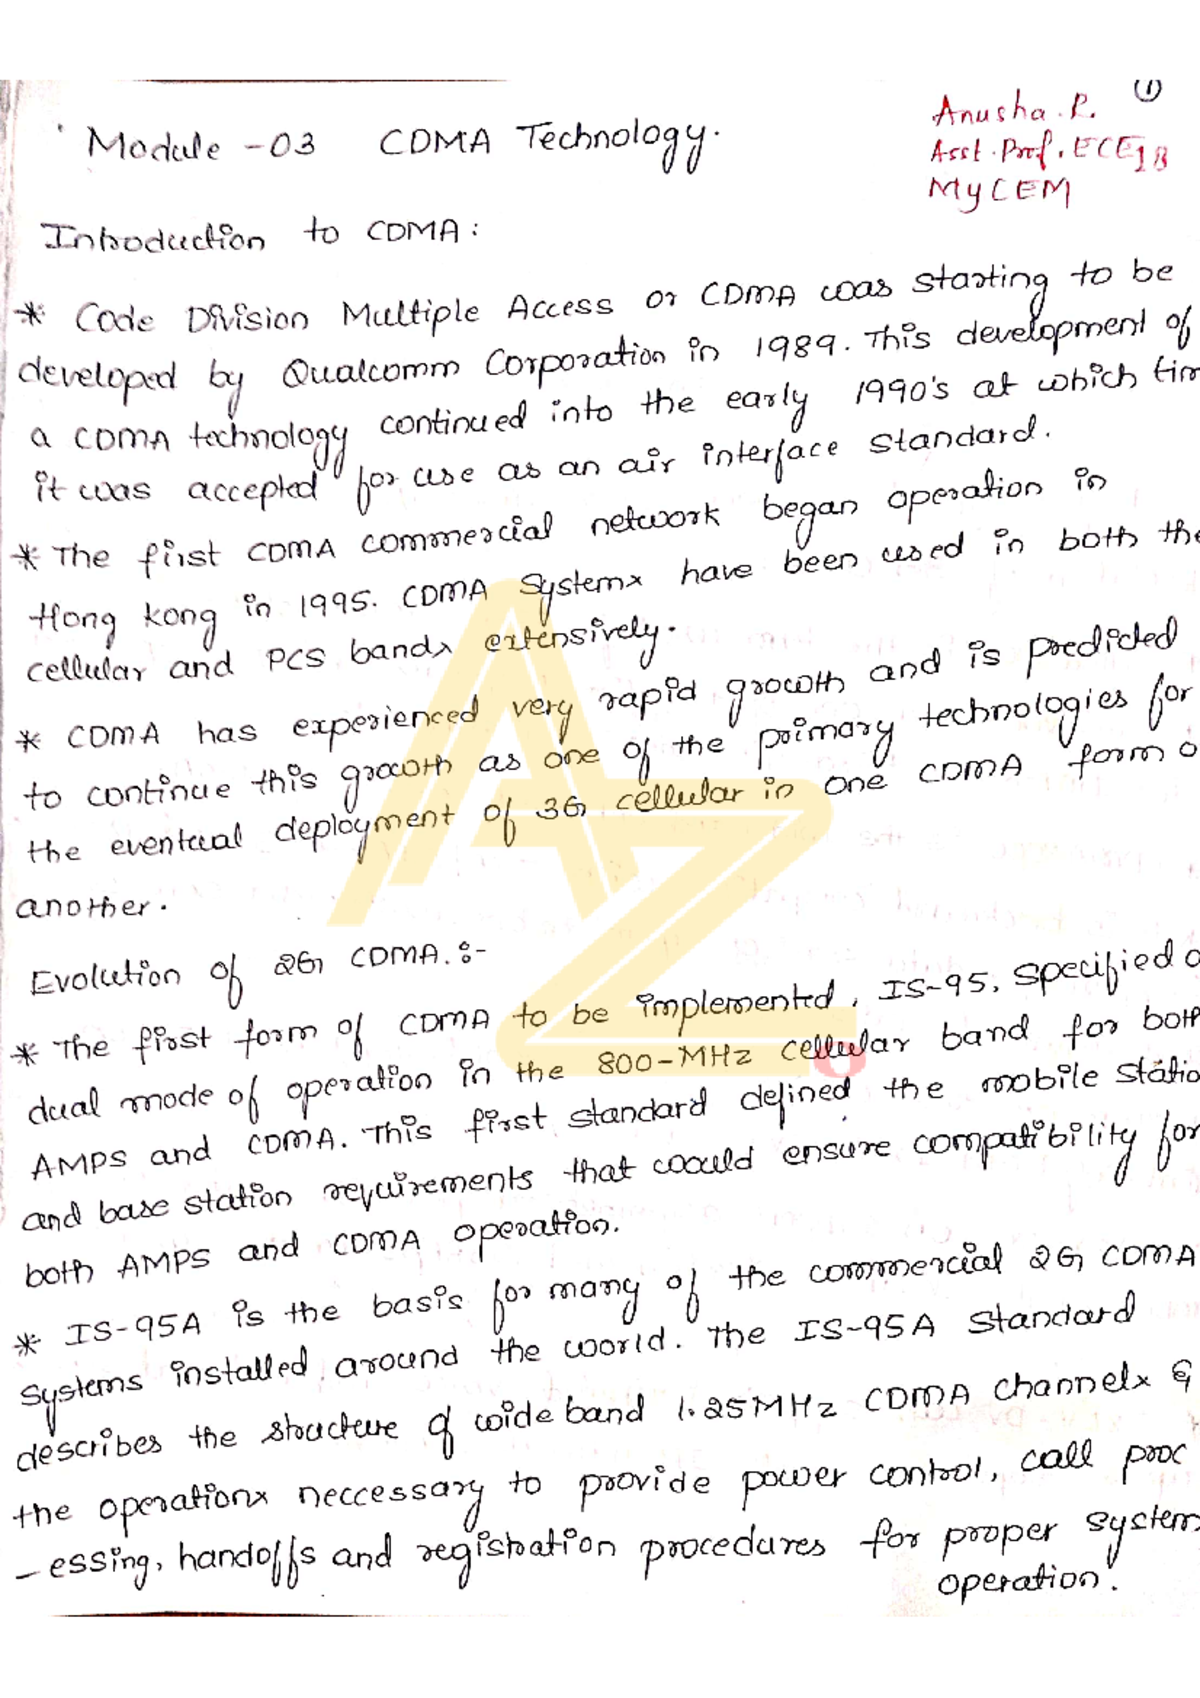 ①
Anusha.R.
Asst.Prof, ECE
MYCEM
Module -03 CDMA Technology.
Introduction to CDMA:
* Code Division Multiple Access or CDMA was starting to be
developed by Qualcomm Corporation in 1989. This development of
a CDMA technology continued into the early 1990's at which tim
it was accepted for use as an air interface standard.
* The first CDMA commercial network began operation in
Hong Kong in 1995. CDMA Systems have been used in both the
cellular and PCS bands extensively.
* CDMA has experienced very rapid growth and is predicted
to continue this growth as one of the primary technologies for
the eventual deployment of 3G cellular in one CDMA form o
another.
Evolution of 2G CDMA.:-
* The first form of CDMA to be implemented, IS-95, specified a
dual mode of operation in the 800-MHz cellular band for both
AMPS and CDMA. This first standard defined the mobile statio
and base station requirements that would ensure compatibility for
both AMPS and CDMA operation.
* IS-95A is the basis for many of the commercial 2G CDMA
systems installed around the world. The IS-95A standard
describes the structure of wide band 1.25MHz CDMA channels &
the operations neccessary to provide power control, call proc
-essing, handoffs and registration procedures for proper system
operation.
AZ
O